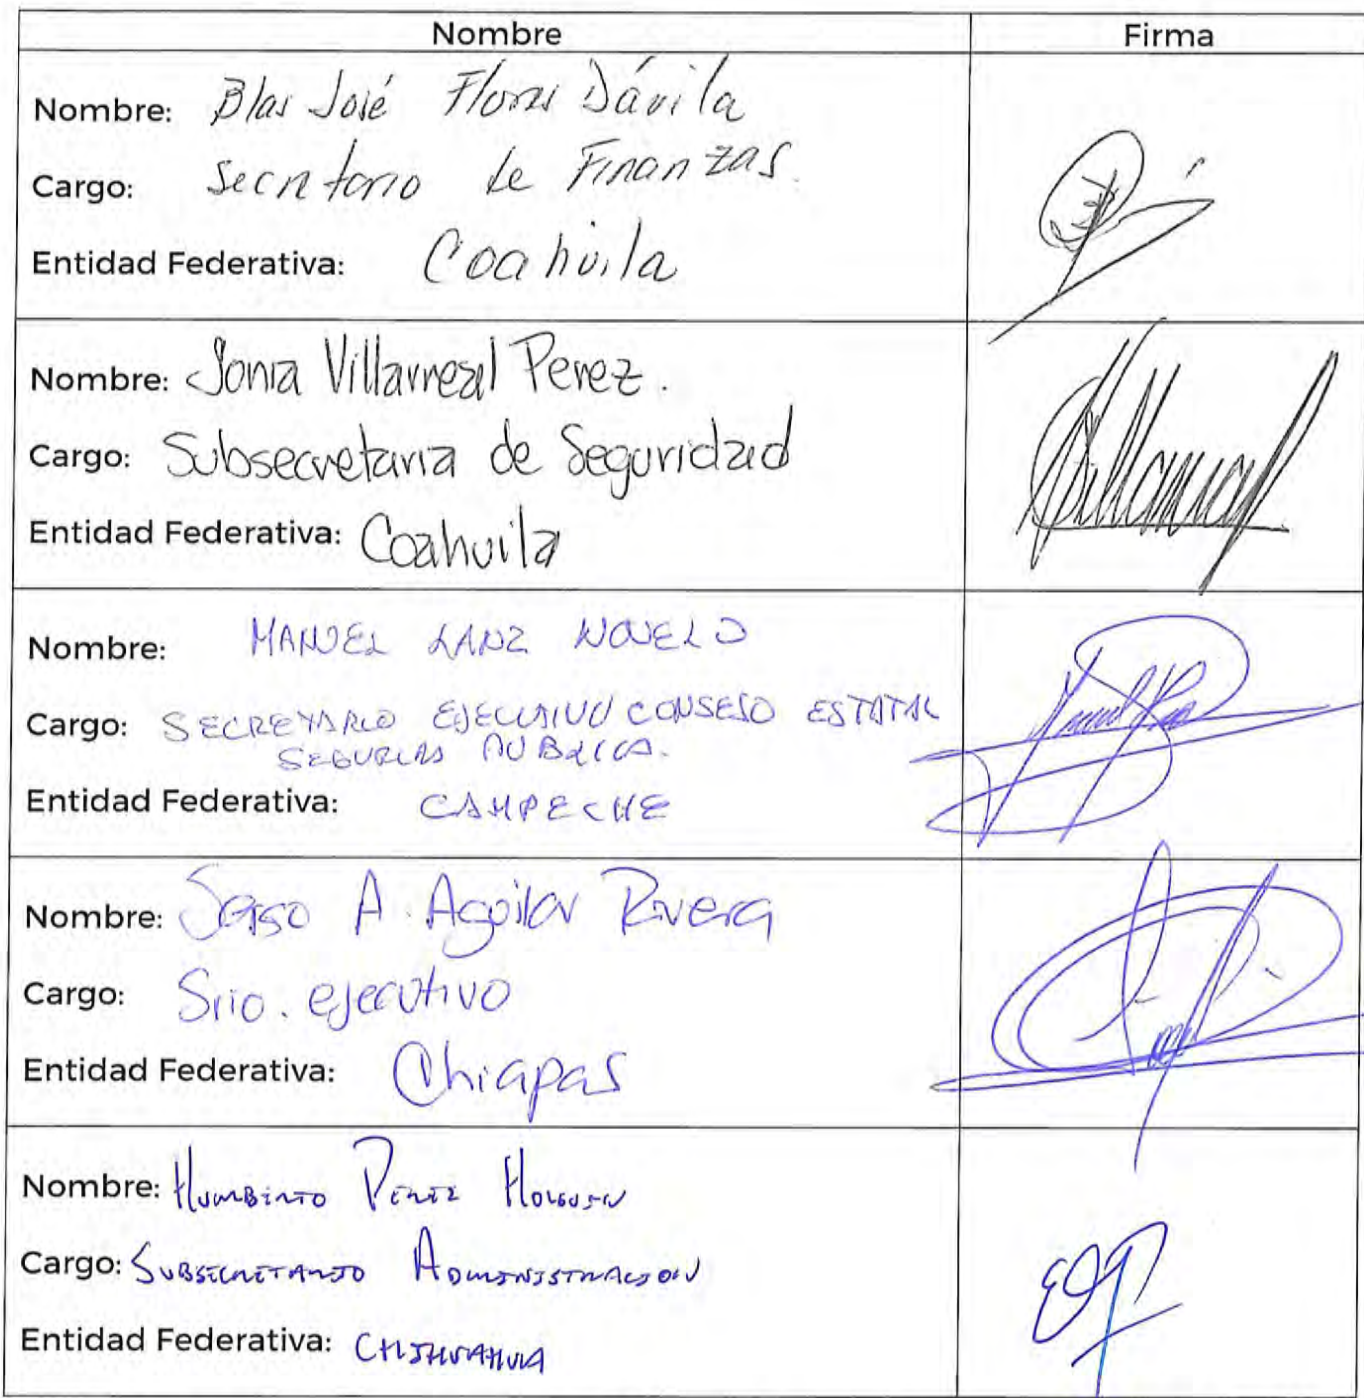 Nombre Firma
Nombre: Blas José Flores Dávila
Cargo: Secretario de Finanzas.
Entidad Federativa: Coahuila
Nombre: Sonia Villarreal Perez.
Cargo: Subsecretaria de Seguridad
Entidad Federativa: Coahuila
Nombre: MANUEL LANZ NOVELO
Cargo: SECRETARIO EJECUTIVO CONSEJO ESTATAL
PUBLICA.
Entidad Federativa: CAMPECHE
Nombre: A. Aguilar Rivera
Cargo: Srio. ejecutivo
Entidad Federativa: Chiapas
Nombre: HUMBERTO PÉREZ HOLGUIN
Cargo: SUBSECRETARIO ADMINISTRACION
Entidad Federativa: CHIHUAHUA